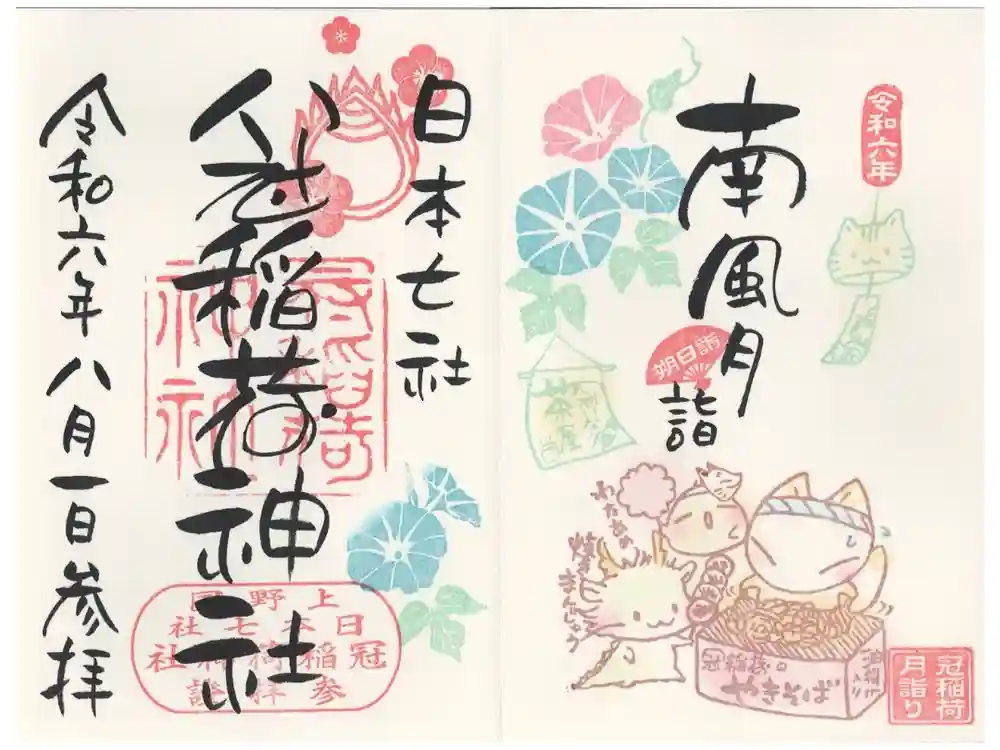 令和六年
南風月
朔日詣
詣
茶屋
わたあめ
焼き
まんじゅう
冠稲荷の
やきそば
油揚げ
入り
冠稲荷
月詣り
日本七社
冠稲荷神社
上野国
日本七社
冠稲荷神社
参拝證
令和六年八月一日参拝